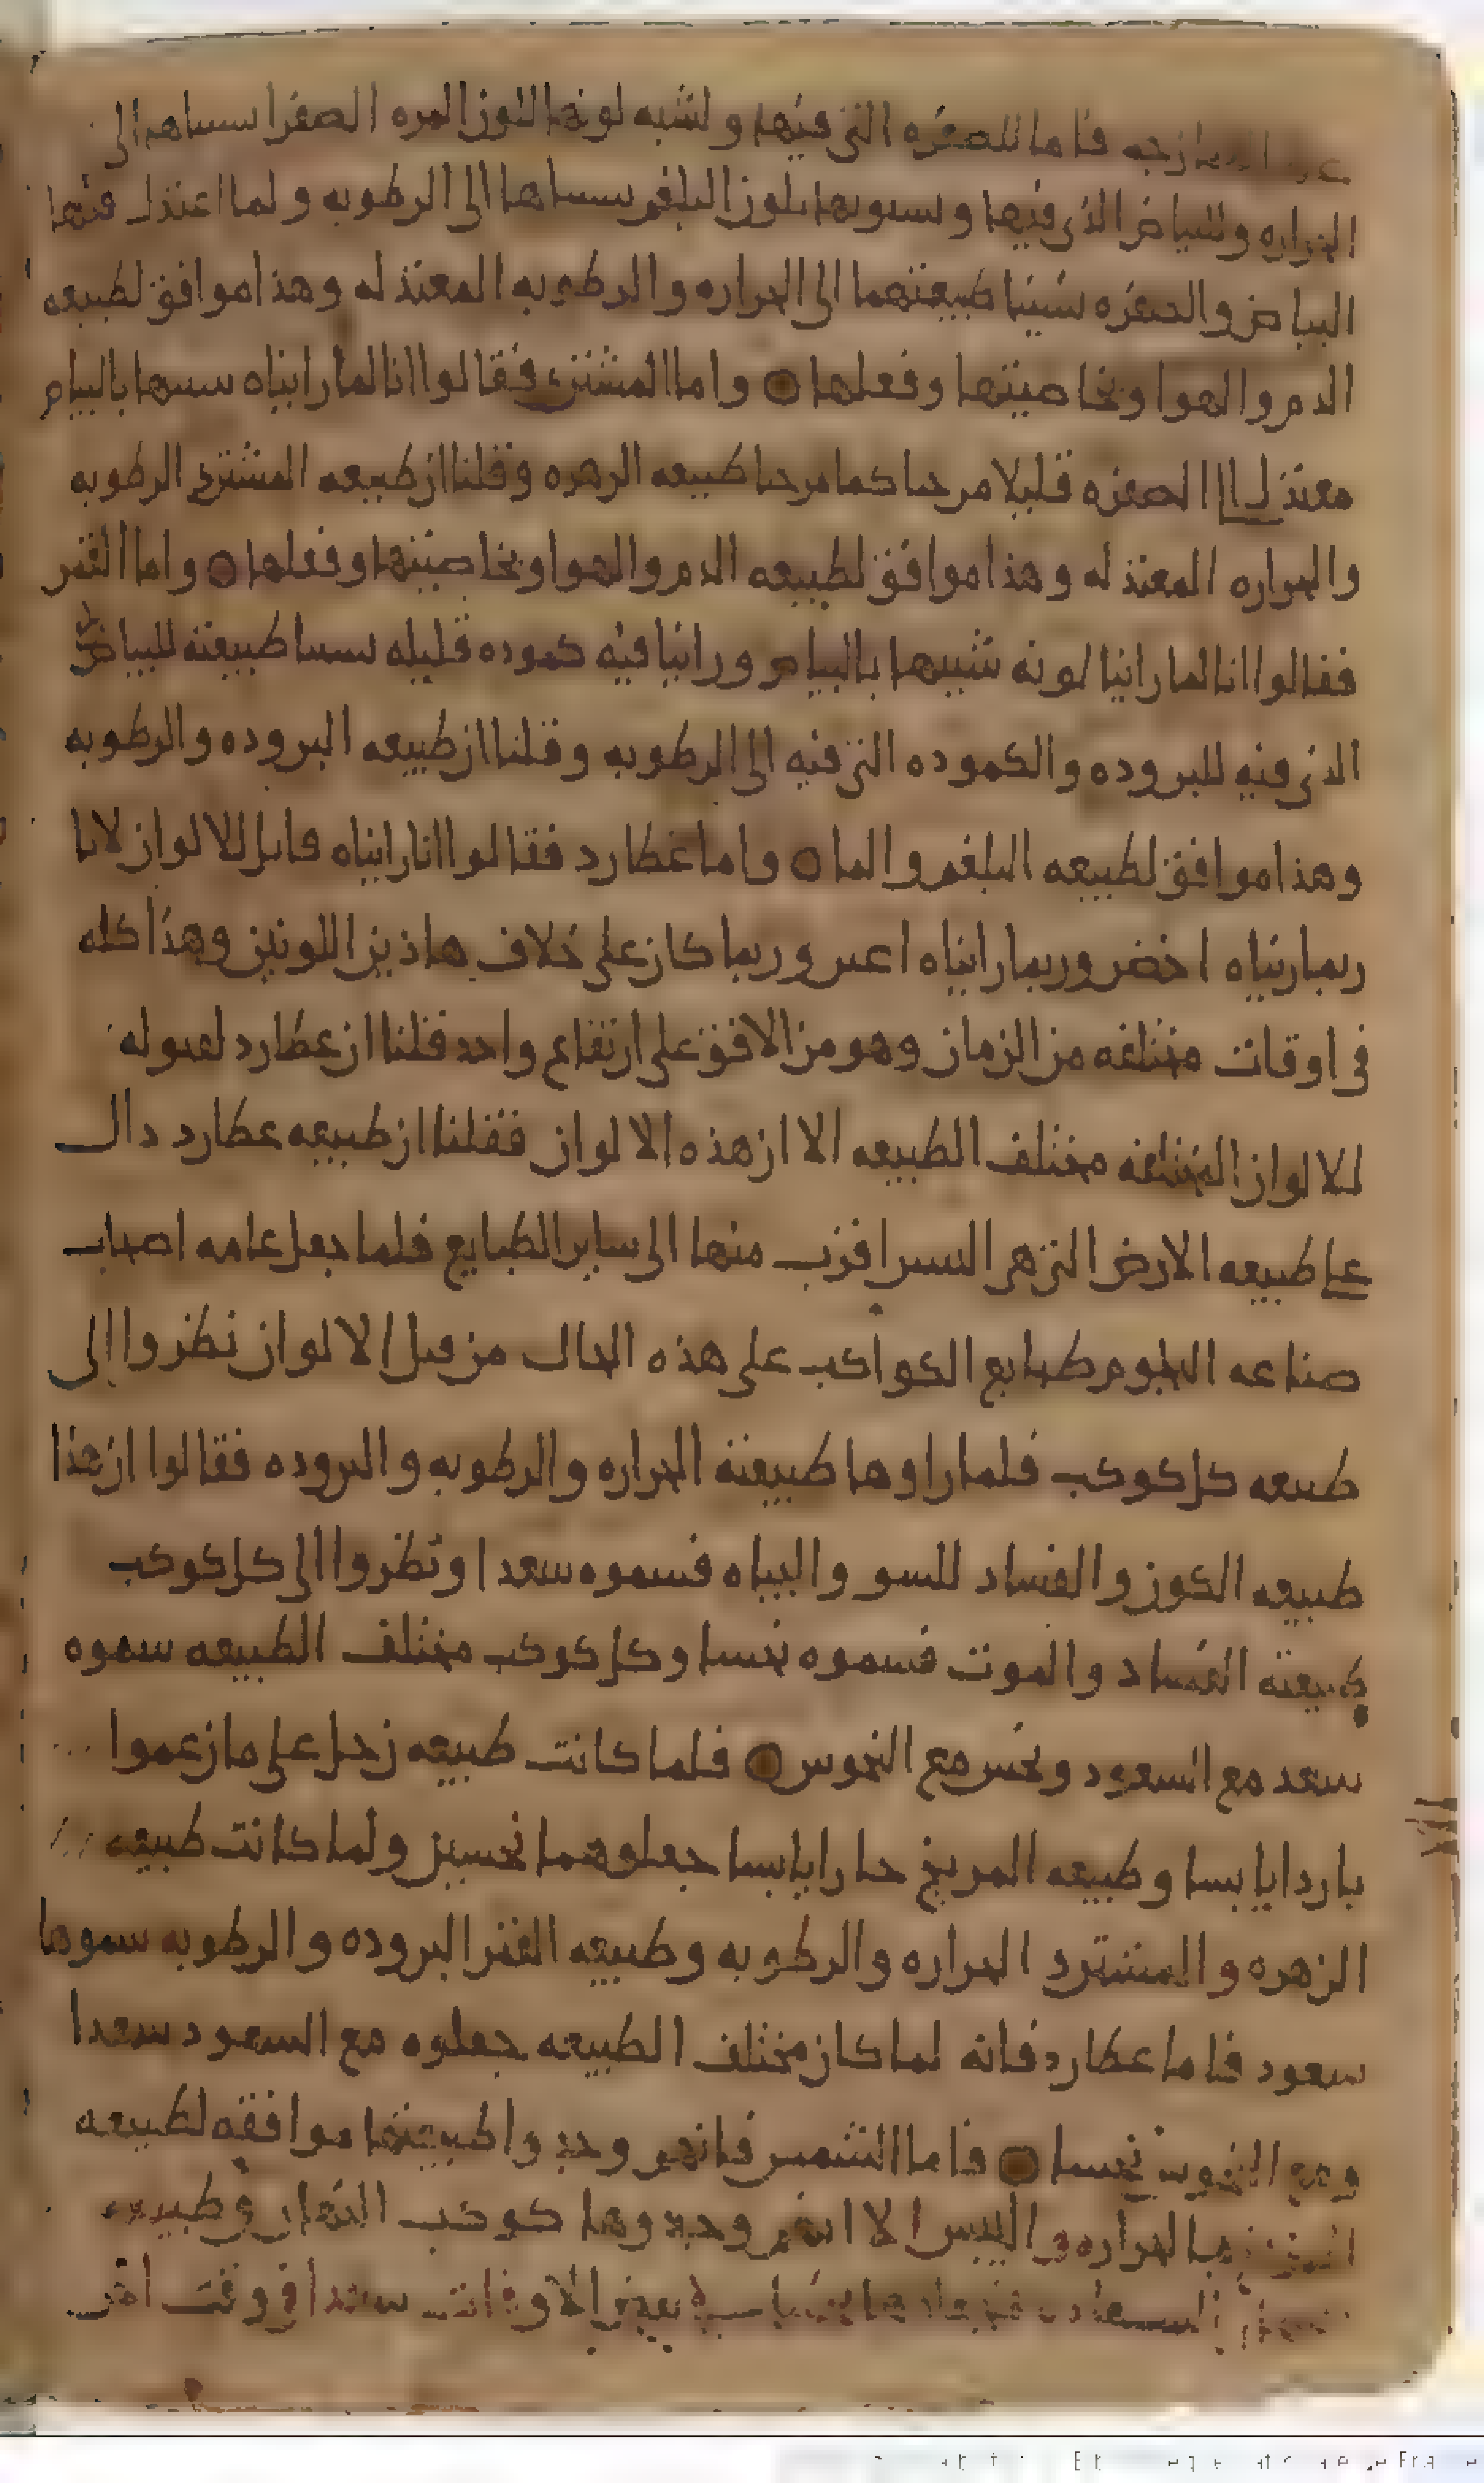 فاما للصفره التى فيها ولشبه لونها بلون المره الصفرا نسبناها الى
الحراره وللبياض الذى فيها ولشبهها بلون البلغم نسبناها الى الرطوبه ولما اعتدل فيها
البياض والصفره نسبنا طبيعتهما الى الحراره والرطوبه المعتدله وهذا موافق لطبيعه
الدم والهوا وبخاصيتها وفعلها ○ واما المشترى فقالوا انا لما رايناه شبيها بالبياض
معتدل الصفره قليلا مزجنا كما مزجنا طبيعه الزهره وقلنا ان طبيعه المشترى الرطوبه
والحراره المعتدله وهذا موافق لطبيعه الدم والهوا وبخاصيتها وفعلها ○ واما القمر
فقالوا انا لما راينا لونه شبيها بالبياض وراينا فيه كموده قليله نسبنا طبيعته للبياض
الذى فيه للبروده والكموده التى فيه الى الرطوبه وقلنا ان طبيعه البروده والرطوبه
وهذا موافق لطبيعه البلغم والما ○ واما عطارد فقالوا انا رايناه قابل للالوان لانا
ربما ريناه اخضر وربما رايناه اغبر وربما كان على خلاف هاذين اللونين وهذا كله
فى اوقات مختلفه من الزمان وهو من الافق على ارتفاع واحد فقلنا ان عطارد لقبوله
للالوان المختلفه مختلف الطبيعه الا ان هذه الالوان فقلنا ان طبيعه عطارد دال
على طبيعه الارض التى هى اليبس اقرب منها الى ساير الطبايع فلما جعل عامه اصحاب
صناعه النجوم طبايع الكواكب على هذه الحال من قبل الالوان نظروا الى
طبيعه كل كوكب فلما راوها طبيعته الحراره والرطوبه والبروده فقالوا ان هذا
طبيعه الكون والفساد للسو والبياه فسموه سعدا ونظروا الى كل كوكب
طبيعته الفساد والموت فسموه نحسا وكل كوكب مختلف الطبيعه سموه
سعد مع السعود ونحس مع النحوس ○ فلما كانت طبيعه زحل على ما زعموا
باردا يابسا وطبيعه المريخ حارا يابسا جعلوهما نحسين ولما كانت طبيعه
الزهره والمشترى الحراره والرطوبه وطبيعه القمر البروده والرطوبه سموها
سعود فاما عطارد فانه لما كان مختلف الطبيعه جعلوه مع السعود سعدا
ومع النحوس نحسا ○ فاما الشمس فانهم وجدوا طبيعتها موافقه لطبيعه
الحراره واليبس الا انهم وجدوها كوكب النهار وطبيعه
بعض الاوقات سعدا فى وقت اخر